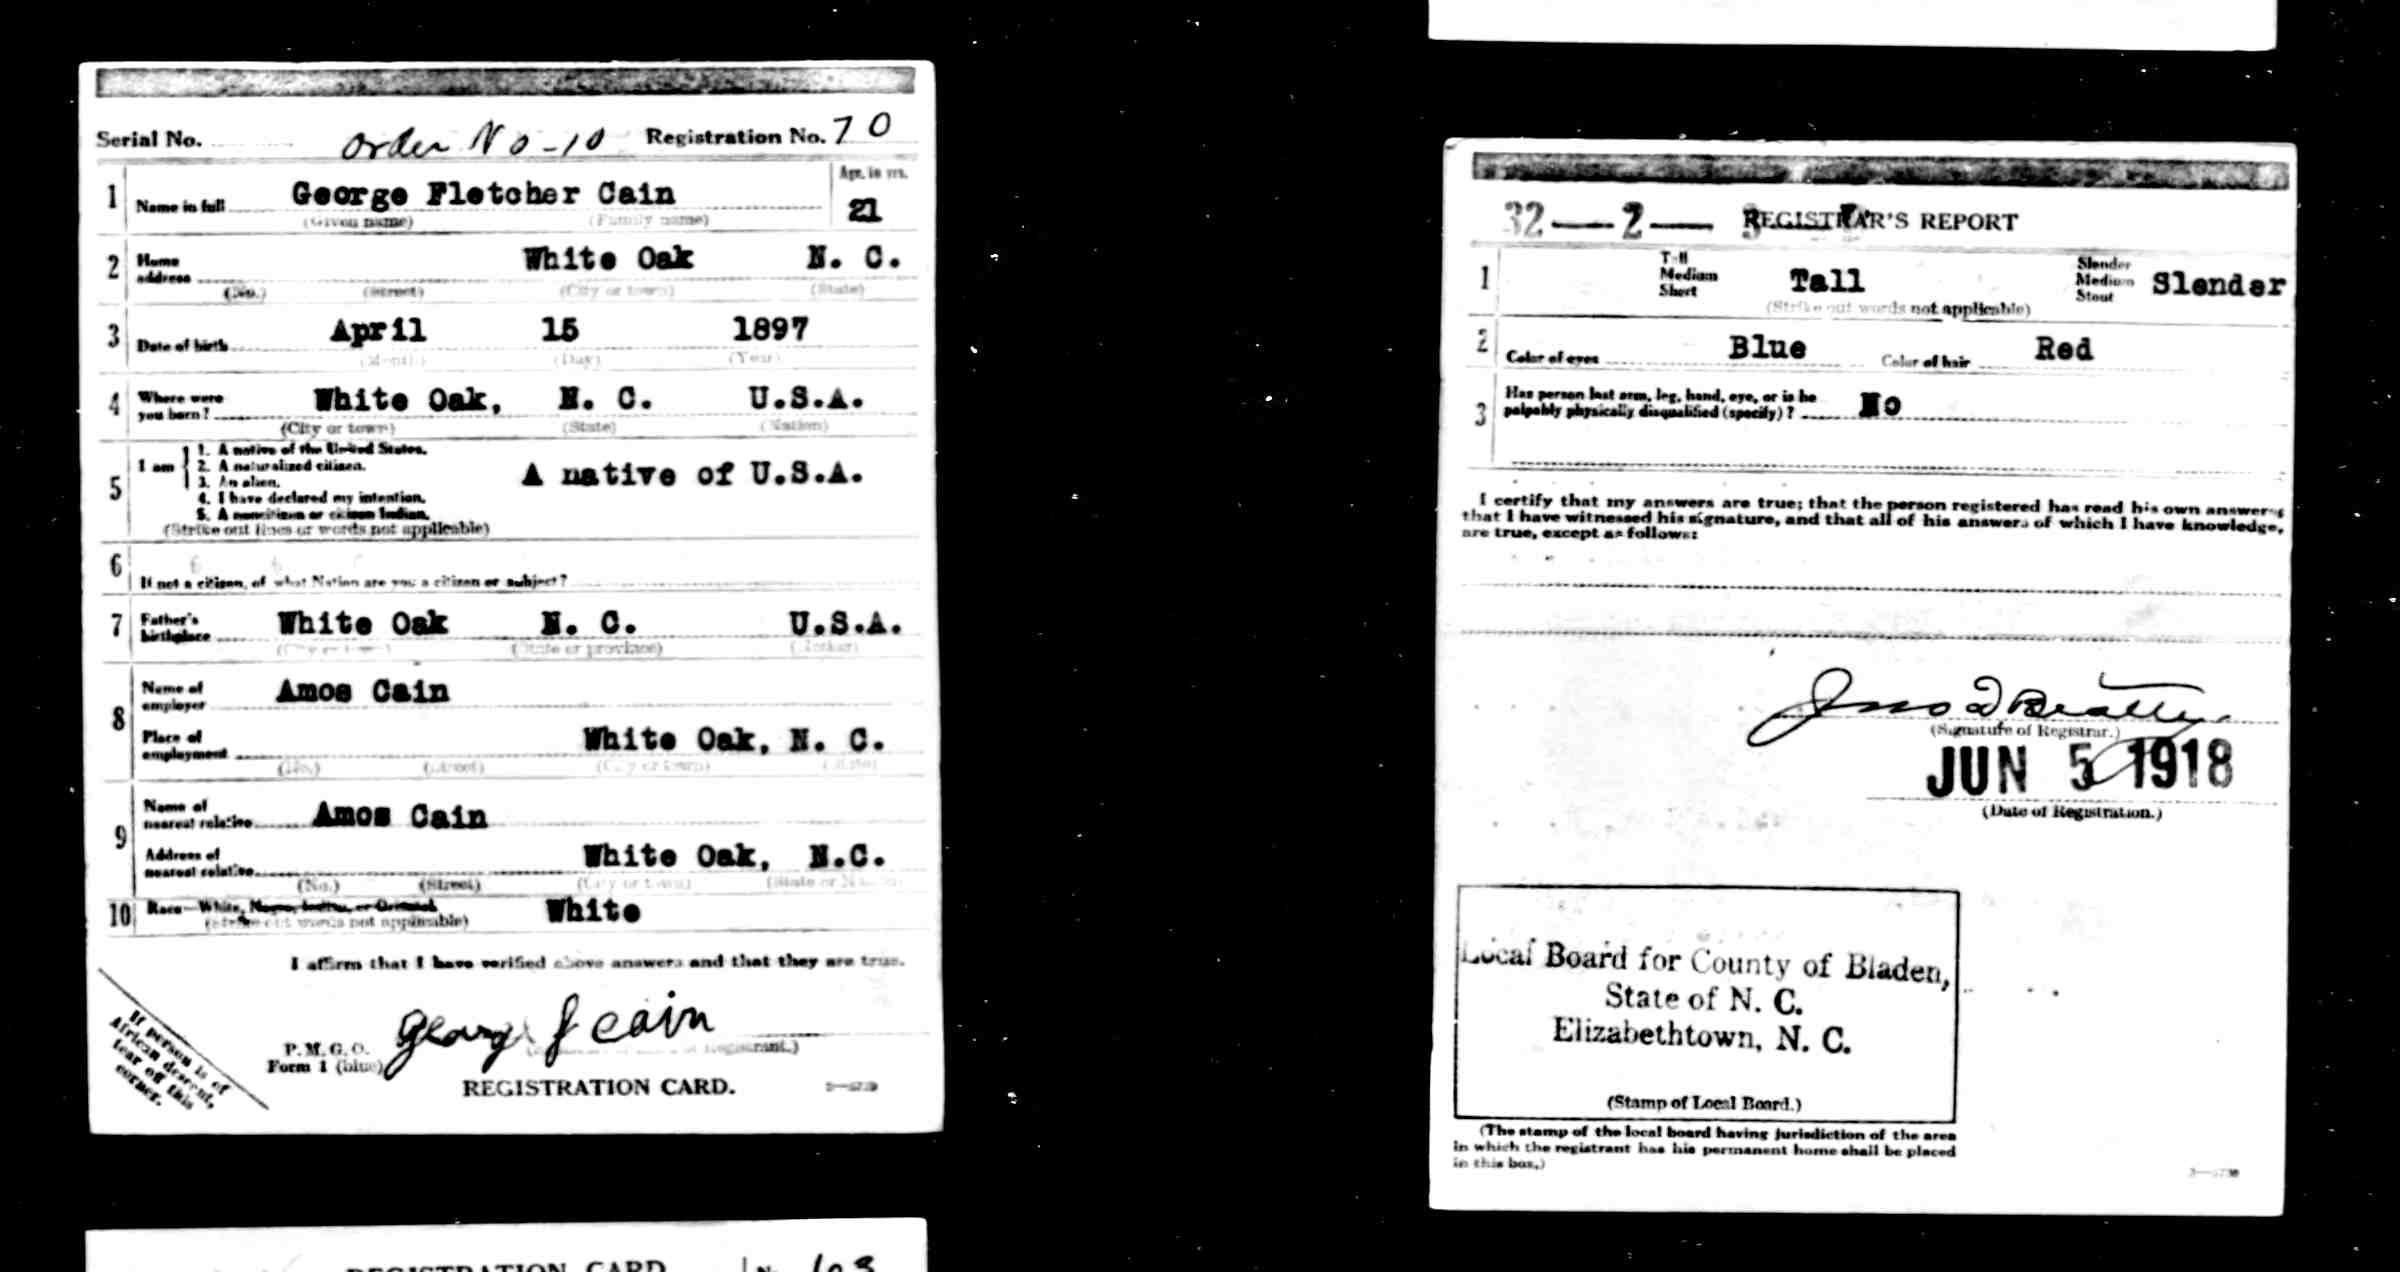 Serial No. Order No-10 Registration No. 70
1 Name in full George Fletcher Cain Age, in yrs. 21
(Given name) (Family name)
2 Home address White Oak N. C.
(No.) (Street) (City or town) (State)
3 Date of birth April 15 1897
(Month) (Day) (Year)
4 Where were you born? White Oak, N. C. U.S.A.
(City or town) (State) (Nation)
5 I am
1. A native of the United States.
2. A naturalized citizen.
3. An alien.
4. I have declared my intention.
5. A noncitizen or citizen Indian.
(Strike out lines or words not applicable)
A native of U.S.A.
6 If not a citizen, of what Nation are you a citizen or subject?
7 Father's birthplace White Oak N. C. U.S.A.
(City or town) (State or province) (Nation)
8 Name of employer Amos Cain
Place of employment White Oak, N. C.
(No.) (Street) (City or town) (State)
9 Name of nearest relative Amos Cain
Address of nearest relative White Oak, N.C.
(No.) (Street) (City or town) (State or Nation)
10 Race—White, Negro, Indian, or Oriental White
(Strike out words not applicable)
I affirm that I have verified above answers and that they are true.
George F Cain
P.M.G.O.
Form 1 (blue)
REGISTRATION CARD.
If person is of
African descent,
tear off this
corner.
REGISTRATION CARD No. 103
32—2— REGISTRAR'S REPORT
1 Tall Medium Short Tall Slender Medium Stout Slender
(Strike out words not applicable)
2 Color of eyes Blue Color of hair Red
3 Has person lost arm, leg, hand, eye, or is he
palpably physically disqualified (specify)? No
I certify that my answers are true; that the person registered has read his own answers
that I have witnessed his signature, and that all of his answers of which I have knowledge,
are true, except as follows:
Jno D Beatty
(Signature of Registrar.)
JUN 5 1918
(Date of Registration.)
Local Board for County of Bladen,
State of N. C.
Elizabethtown, N. C.
(Stamp of Local Board.)
(The stamp of the local board having jurisdiction of the area
in which the registrant has his permanent home shall be placed
in this box.)